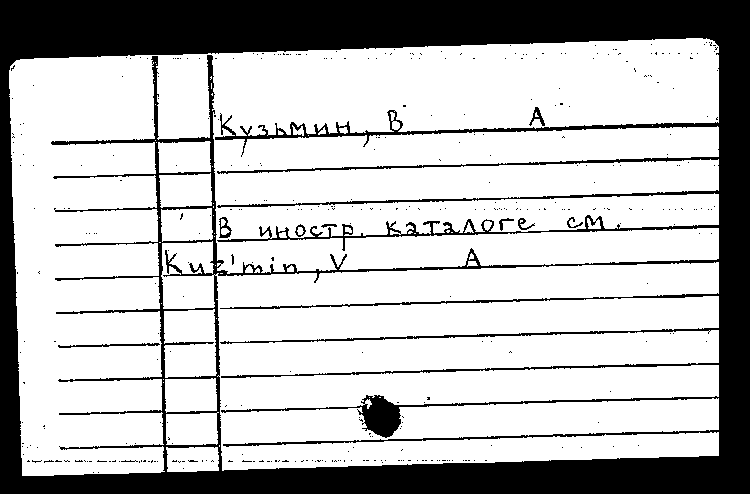 Кузьмин, В А
В иностр. каталоге см.
Kuz'min, V A